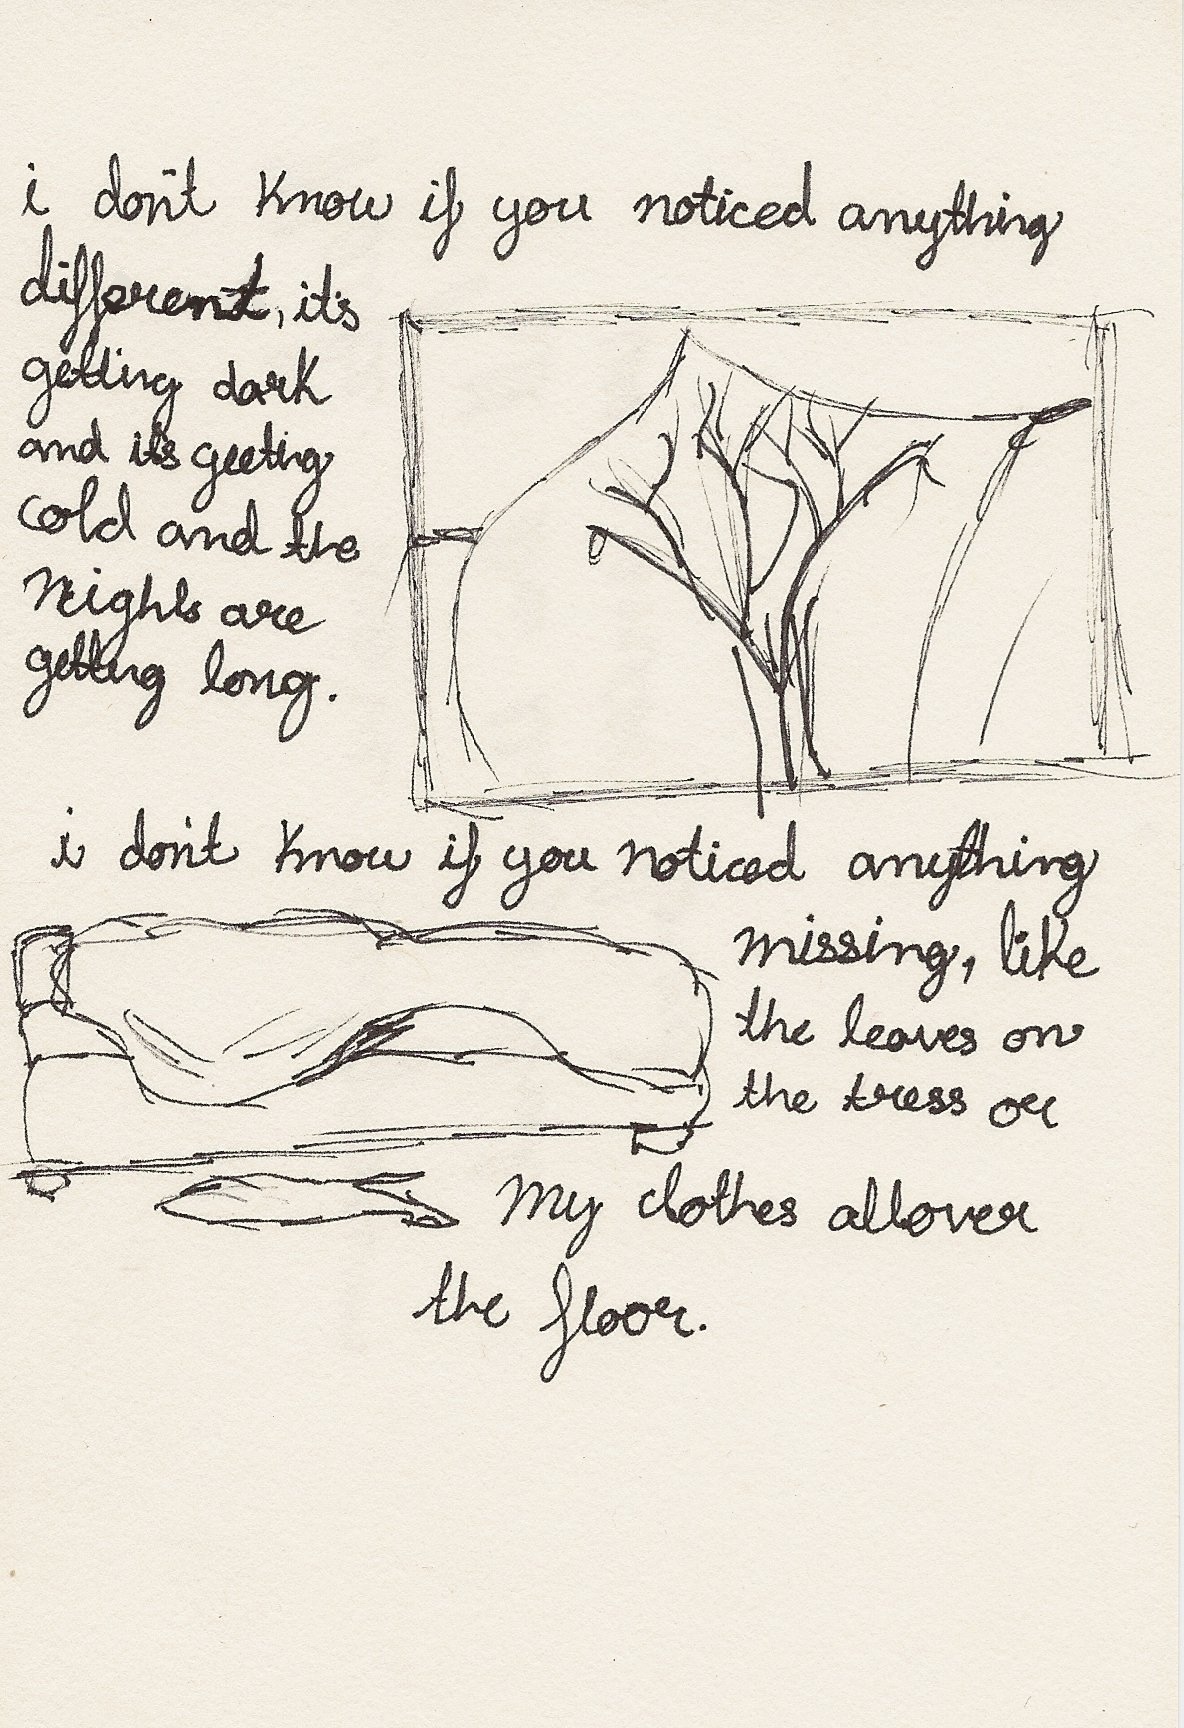 i don't know if you noticed anything
different, it's
getting dark
and it's geeting
cold and the
nights are
getting long.
i don't know if you noticed anything
missing, like
the leaves on
the tress or
my clothes allover
the floor.